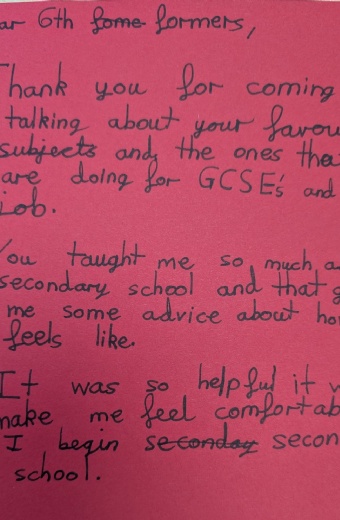 ar 6th fome formers,
Thank you for coming
talking about your favou
subjects and the ones tha
are doing for GCSE's and
Job.
You taught me so much a
secondary school and that g
me some advice about ho
feels like.
It was so helpful it w
make me feel comfortab
I begin seconday secon
school.